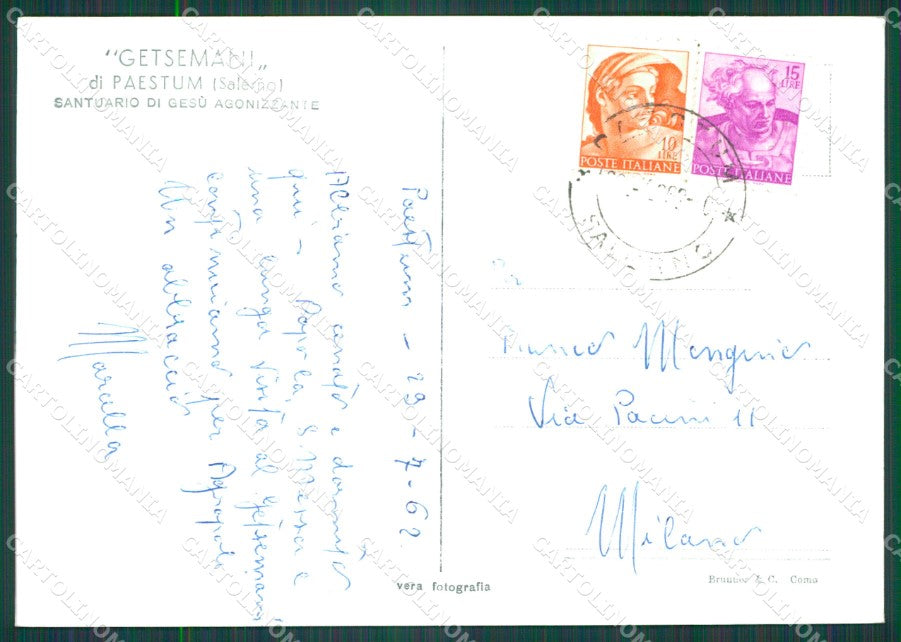 "GETSEMANI"
di PAESTUM (Salerno)
SANTUARIO DI GESÙ AGONIZZANTE
Paestum - 29-7-62.
Abbiamo cenato e dormito
qui - Dopo la S. Messa e
una lunga visita al Getsemani
continuiamo per Agropoli
Un abbraccio
Marcella
10
LIRE
POSTE ITALIANE
15
LIRE
POSTE ITALIANE
SALERNO
Via Pacini 11
Milano
vera fotografia
Brunner & C. Como
CARTOLINOMANIA